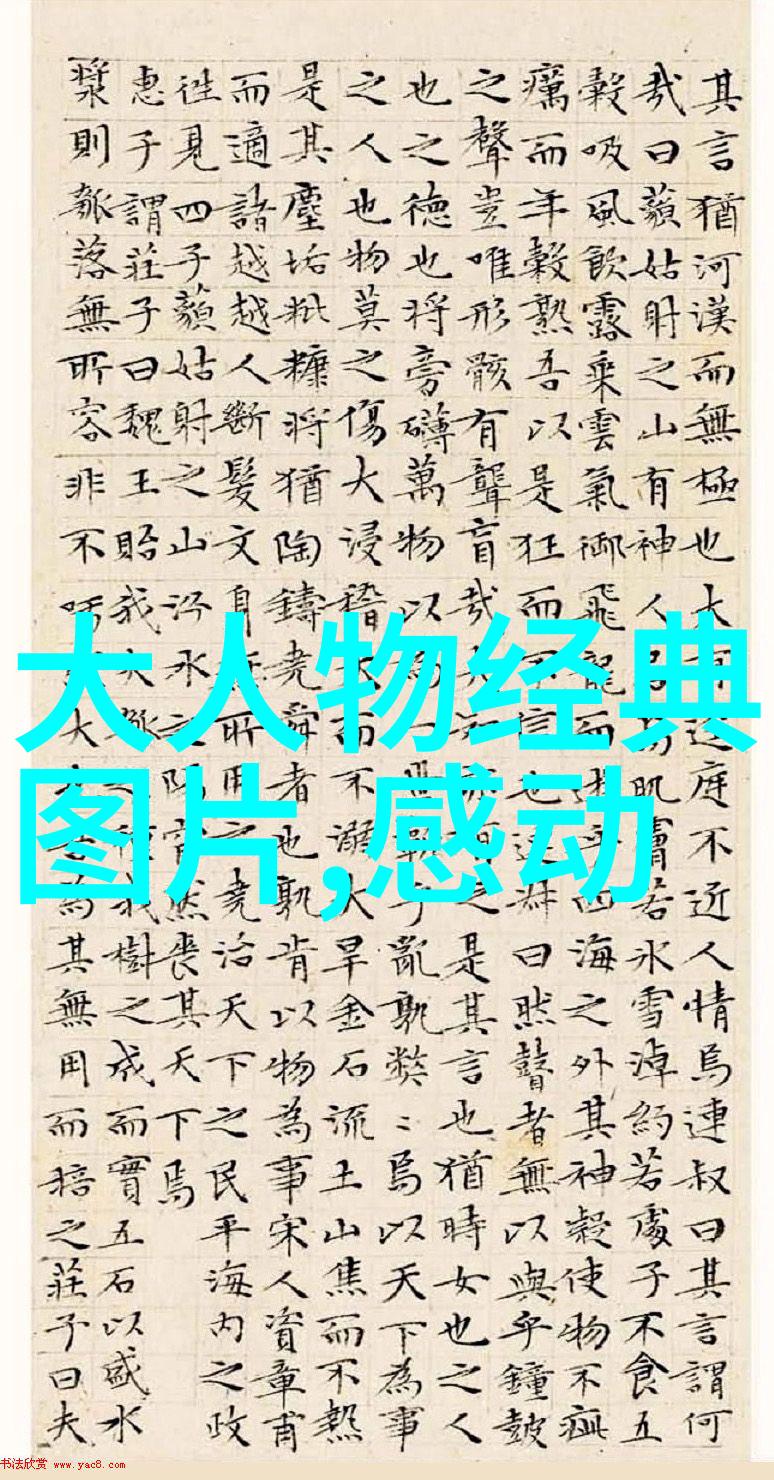 大人物经典
图片,感动
其言猶河漢而無極也大庭不近人情焉連叔曰其言謂何
哉曰藐姑射之山有神人肌膚若氷雪淖約若處子不食五
穀吸風飲露乗雲氣御飛龍而乎四海之外其神凝使物不疵
癘而年穀熟吾以是狂而不信也連叔曰然瞽者無以與乎鐘鼓
之聲豈唯形骸有聾盲哉之是其言也猶時女也之人
也之德也將旁礴萬物以為一世乎亂孰弊〻焉以天下為事
之人也物莫之傷大浸稽而不溺大旱金石流土山焦而不熱
是其塵垢粃糠將猶陶鑄堯舜者也孰肯以物為事宋人資章甫
而適諸越越人斷髮文身所用之堯治天下之民平海内之政
往見四子藐姑射之山汾水之陽窅然喪其天下焉
惠子謂莊子曰魏王貽我大我樹之成而實五石以盛水
漿則瓠落無所容非不大為其無用而掊之莊子曰夫
书法欣赏 www.yac8.com